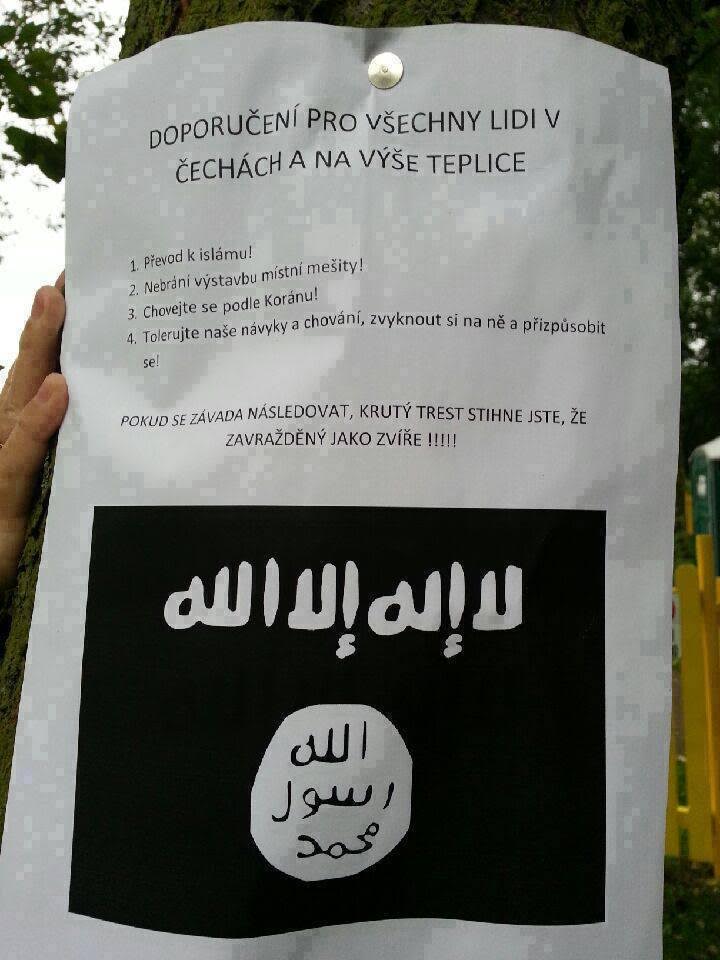 DOPORUČENÍ PRO VŠECHNY LIDI V
ČECHÁCH A NA VÝŠE TEPLICE
1. Převod k islámu!
2. Nebrání výstavbu místní mešity!
3. Chovejte se podle Koránu!
4. Tolerujte naše návyky a chování, zvyknout si na ně a přizpůsobit
se!
POKUD SE ZÁVADA NÁSLEDOVAT, KRUTÝ TREST STIHNE JSTE, ŽE
ZAVRAŽDĚNÝ JAKO ZVÍŘE !!!!!
لا إله إلا الله
الله
رسول
محمد